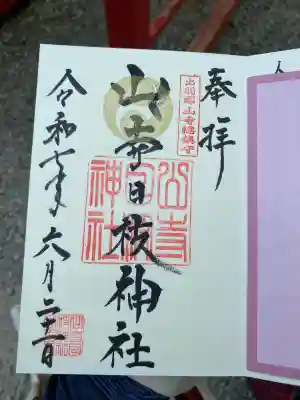 奉拝
出羽国山寺総鎮守
山寺日枝神社
山寺日枝神社
令和七年 六月二十一日